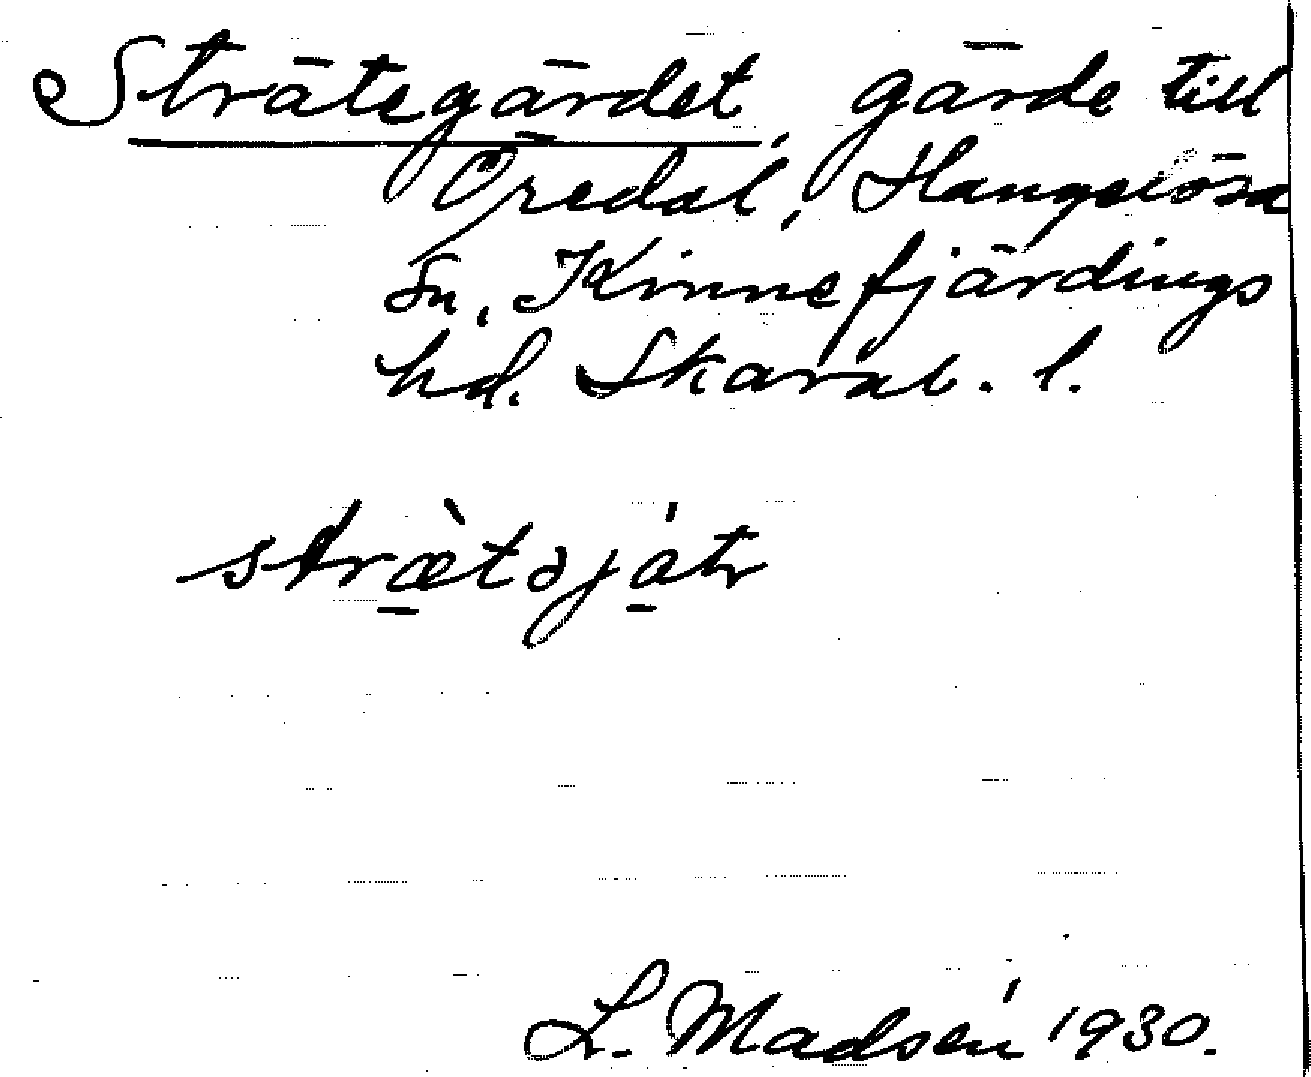 Strätegärdet, gärde till
Öredal, Hangelösa
sn, Kinnefjärdings
hd. Skarab. l.
stræ̀təjátr
L. Madsén 1930.